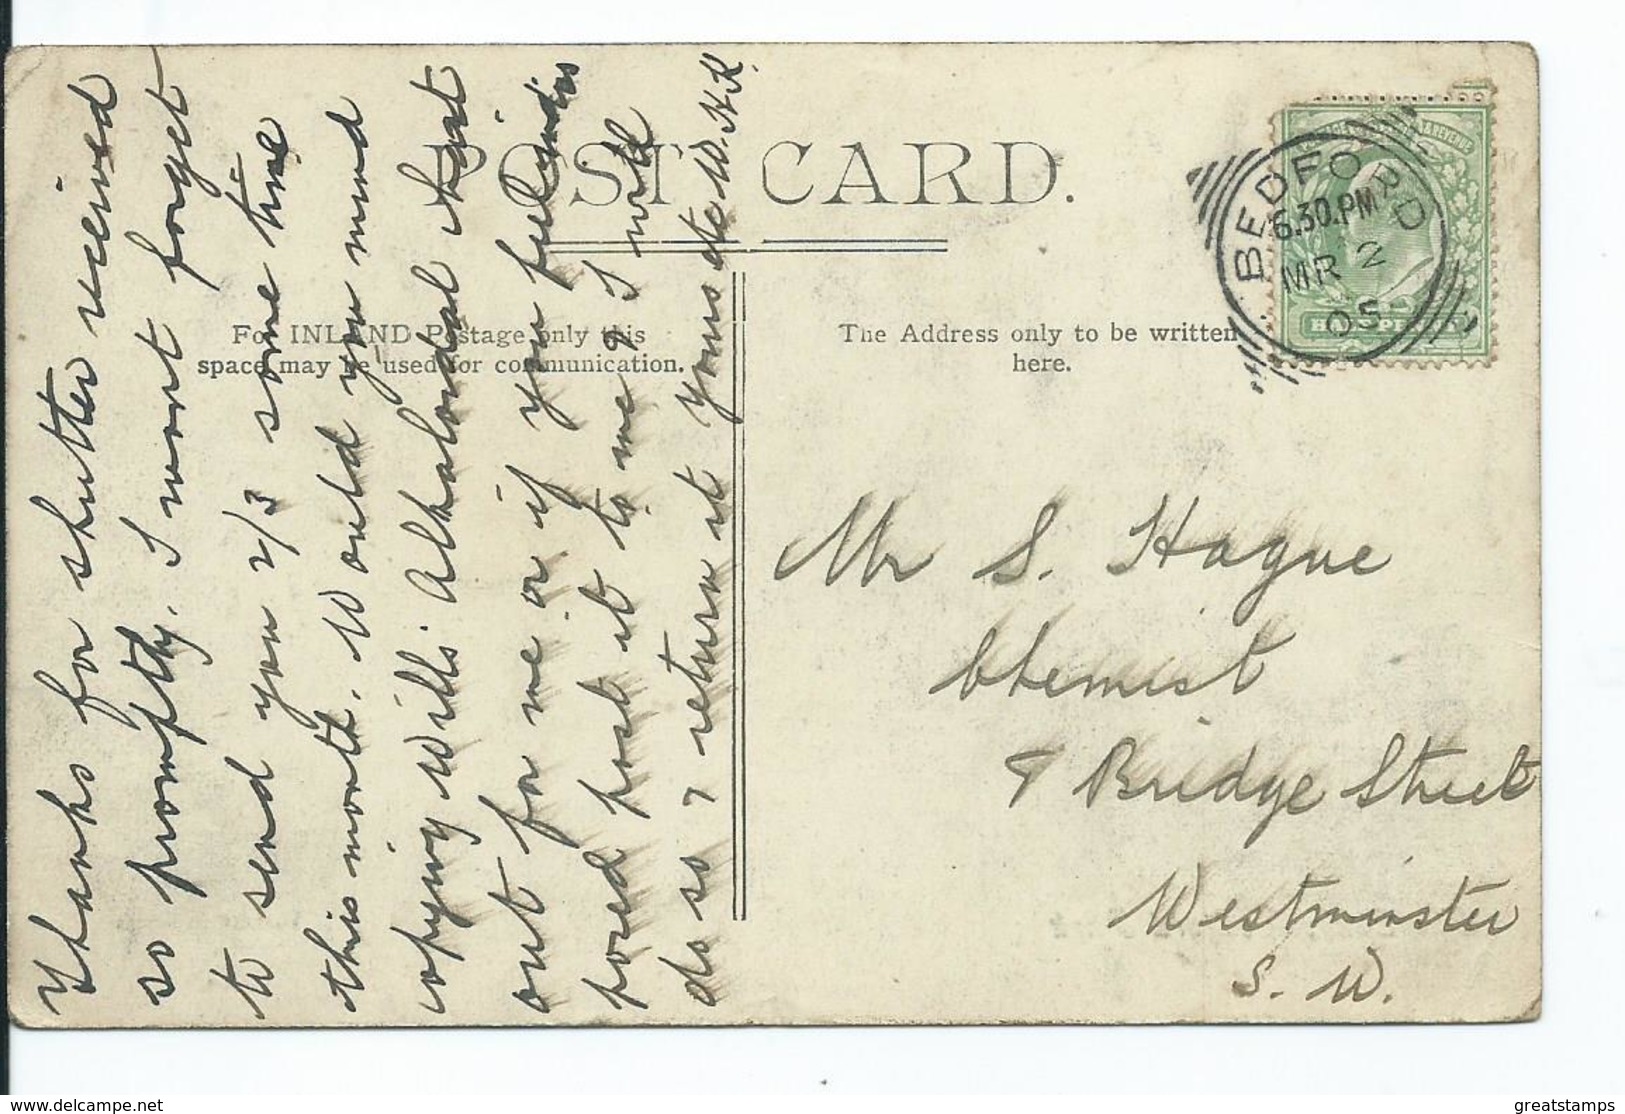 POST CARD.
For INLAND Postage only this
space may be used for communication.
The Address only to be written
here.
BEDFORD
6.30.PM
MR 2
05
Thanks for shutter received
so promptly. I wont forget
to send you 2/3 some time
this month. Would you mind
copying Wills: Alkaloidal chart
out for me or if you feel indis
posed post it to me & I will
do so & return it Yours etc W.H.K.
Mr S. Hague
Chemist
9 Bridge Street
Westminster
S. W.
www.delcampe.net
greatstamps